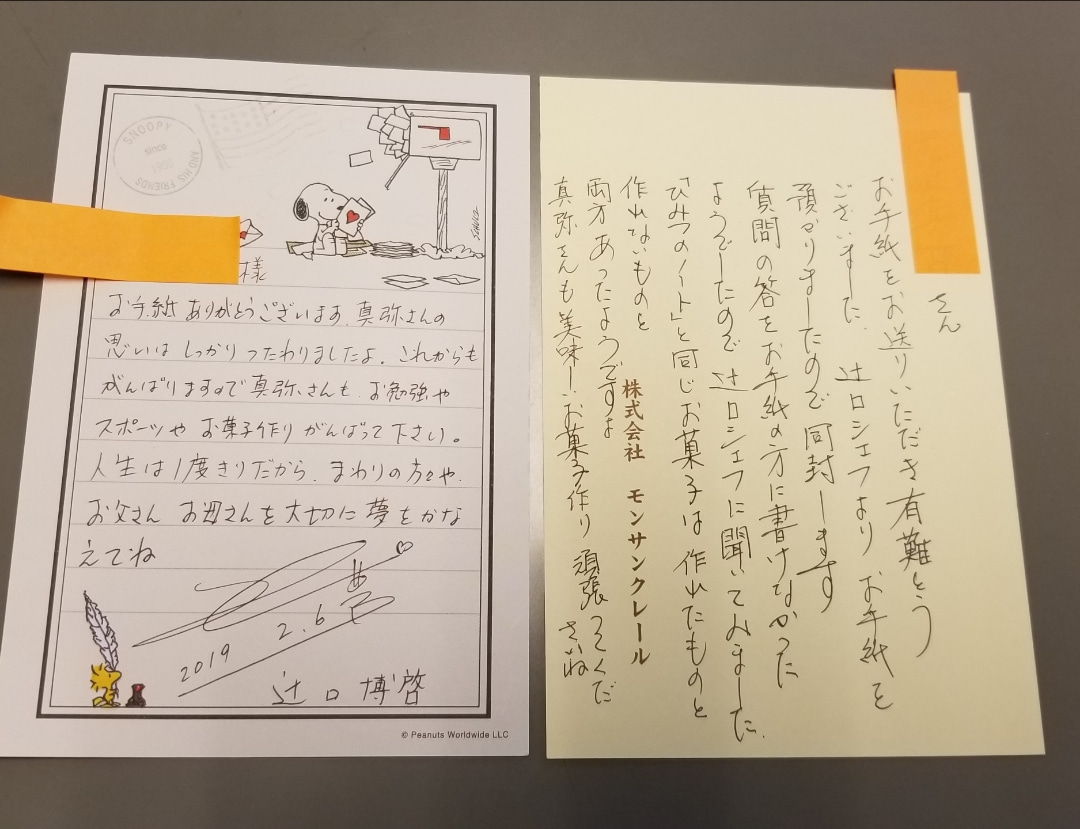 SNOOPY
SINCE
AND HIS FRIENDS
SCHULZ
様
お手紙ありがとうございます、真弥さんの
思いは しっかりつたわりましたよ、これからも
がんばりますので真弥さんも、お勉強や
スポーツや お菓子作り がんばって下さい。
人生は1度きりだから、まわりの方々や、
お父さん お母さんを大切に夢をかな
えてね
夢
2019 2.6
辻口博啓
© Peanuts Worldwide LLC
さん
お手紙をお送りいただき有難とう
ございました、辻口シェフより お手紙を
預かりましたので同封します
質問の答をお手紙の方に書けなかった
ようでしたので辻口シェフに聞いてみました、
「ひみつのノート」と同じお菓子は 作れたものと
作れないものと
両方あったようですよ
株式会社 モンサンクレール
真弥さんも美味しいお菓子作り 頑張ってくだ
さいね